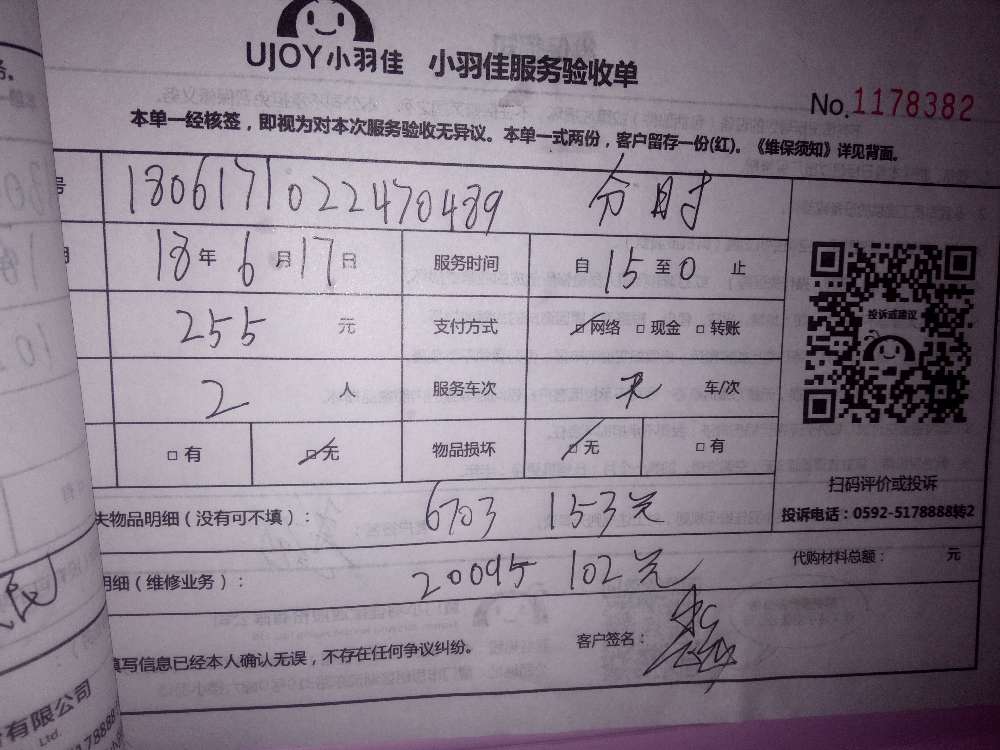 UJOY小羽佳 小羽佳服务验收单
No.1178382
本单一经核签，即视为对本次服务验收无异议。本单一式两份，客户留存一份(红)。《维保须知》详见背面。
号 1806171022470489 分时
18年6月17日 服务时间 自15至0止
255元 支付方式 □网络 □现金 □转账
投诉或建议
2人 服务车次 无 车/次
□有 □无 物品损坏 □无 □有
扫码评价或投诉
投诉电话：0592-5178888转2
失物品明细（没有可不填）： 6703 153元
明细（维修业务）： 20095 102元 代购材料总额： 元
填写信息已经本人确认无误，不存在任何争议纠纷。 客户签名：
有限公司
Ltd.